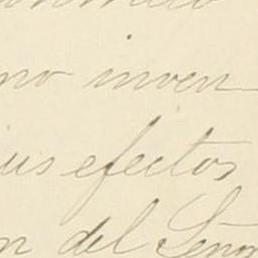 no inven
us efectos
n del Señor